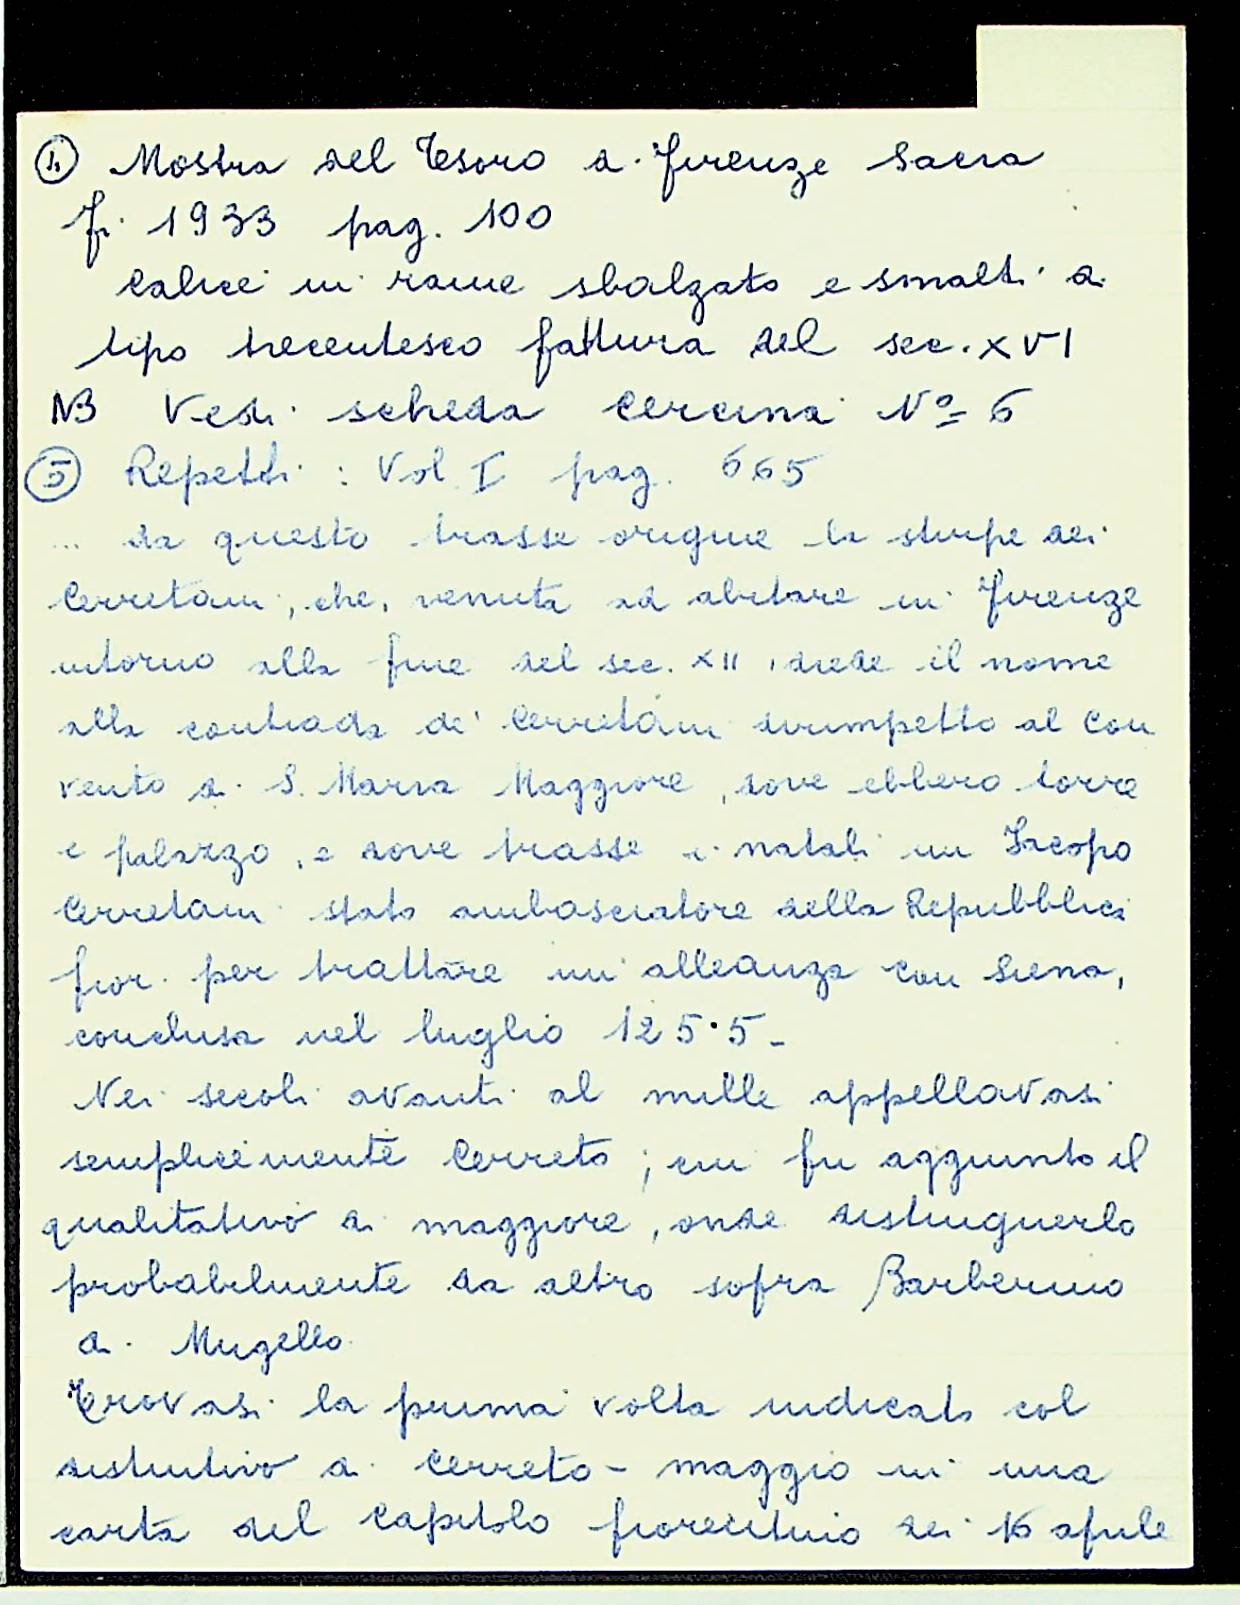 ④ Mostra del Tesoro di Firenze Sacra
Fi. 1933 pag. 100
Calice in rame sbalzato e smalti di
tipo trecentesco fattura del sec. XVI
NB Vedi scheda Cercina Nº 6
⑤ Repetti: Vol. I pag. 665
... da questo trasse origine la stirpe dei
Cerretani, che, venuta ad abitare in Firenze
intorno alla fine del sec. XII, diede il nome
alla contrada de' Cerretani dirimpetto al Con
vento di S. Maria Maggiore, dove ebbero torre
e palazzo, e dove trasse i natali un Jacopo
Cerretani stato ambasciatore della Repubblica
fior. per trattare un'alleanza con Siena,
conclusa nel luglio 1255-
Nei secoli avanti al mille appellavasi
semplicemente Cerreto; cui fu aggiunto il
qualitativo di maggiore, onde distinguerlo
probabilmente da altro sopra Barberino
di Mugello.
Trovasi la prima volta indicato col
distintivo di Cerreto-maggio in una
carta del Capitolo fiorentino dei 16 aprile